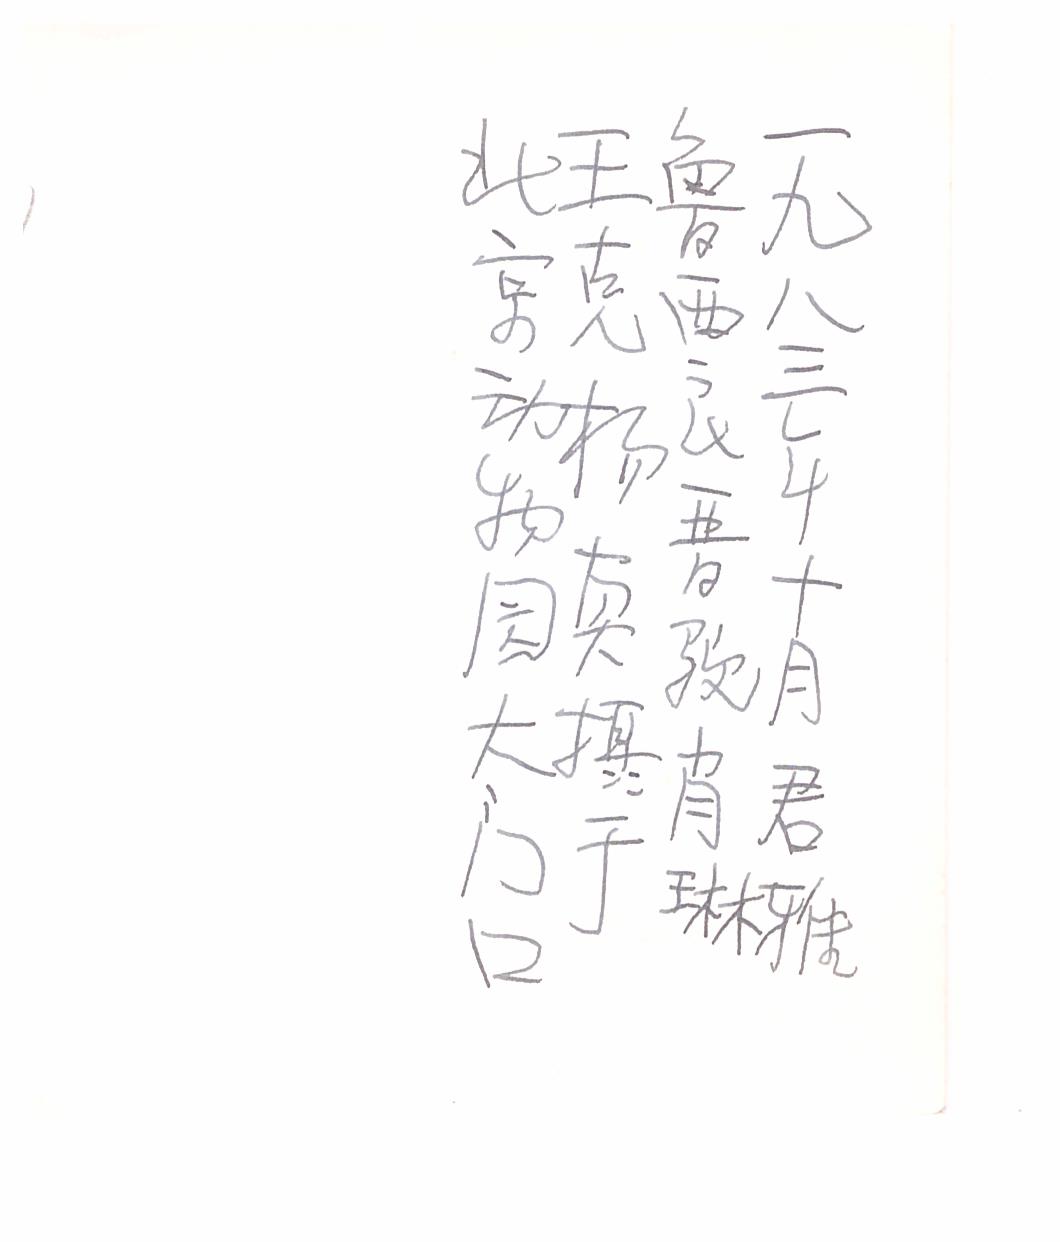 一九八三年十月君雅
鲁西良晋毅肖琳
王克杨真摄于
北京动物园大门口